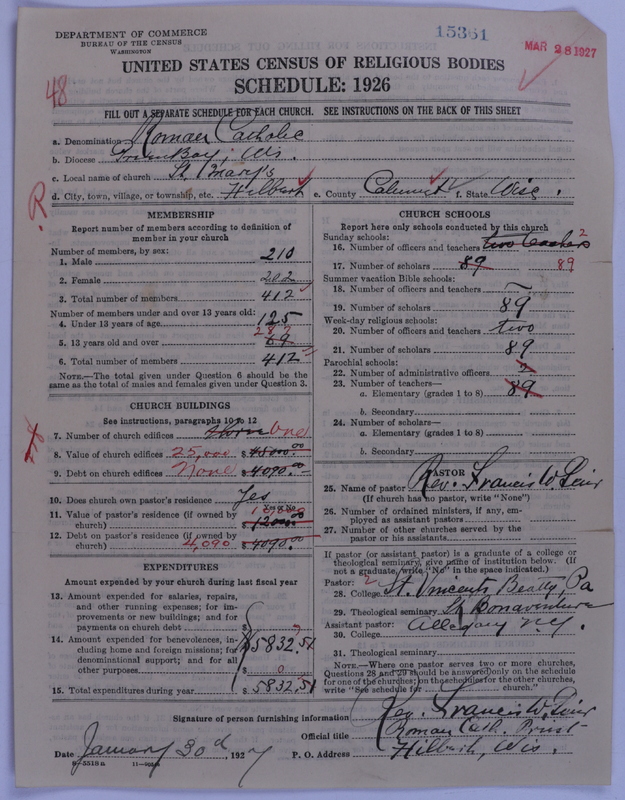 DEPARTMENT OF COMMERCE
BUREAU OF THE CENSUS
WASHINGTON
15361
MAR 28 1927
UNITED STATES CENSUS OF RELIGIOUS BODIES
SCHEDULE: 1926
48
FILL OUT A SEPARATE SCHEDULE FOR EACH CHURCH. SEE INSTRUCTIONS ON THE BACK OF THIS SHEET
a. Denomination Roman Catholic
b. Diocese Green Bay, Wis.
c. Local name of church St. Mary's
d. City, town, village, or township, etc. Hilbert e. County Calumet f. State Wisc.
R
MEMBERSHIP
Report number of members according to definition of member in your church
Number of members, by sex:
1. Male 210
2. Female 202
3. Total number of members 412
Number of members under and over 13 years old:
4. Under 13 years of age 125
5. 13 years old and over 287
6. Total number of members 412
NOTE.—The total given under Question 6 should be the same as the total of males and females given under Question 3.
CHURCH BUILDINGS
See instructions, paragraphs 10 to 12
7. Number of church edifices three One
8. Value of church edifices 25,000 $ 45000.00
9. Debt on church edifices None $ 4090.00
10. Does church own pastor's residence Yes
11. Value of pastor's residence (if owned by church) $ 12000.00
12. Debt on pastor's residence (if owned by church) 4,090 $ 4090.00
EXPENDITURES
Amount expended by your church during last fiscal year
13. Amount expended for salaries, repairs, and other running expenses; for improvements or new buildings; and for payments on church debt $
14. Amount expended for benevolences, including home and foreign missions; for denominational support; and for all other purposes $ 5832.51
0
15. Total expenditures during year $ 5832.51
CHURCH SCHOOLS
Report here only schools conducted by this church
Sunday schools:
16. Number of officers and teachers two teachers 2
17. Number of scholars 89 89
Summer vacation Bible schools:
18. Number of officers and teachers —
19. Number of scholars 89
Week-day religious schools:
20. Number of officers and teachers two
21. Number of scholars 89
Parochial schools:
22. Number of administrative officers 2
23. Number of teachers—
a. Elementary (grades 1 to 8) 89
b. Secondary
24. Number of scholars—
a. Elementary (grades 1 to 8)
b. Secondary
PASTOR
25. Name of pastor Rev. Francis W. Geier
(If church has no pastor, write "None")
26. Number of ordained ministers, if any, employed as assistant pastors
27. Number of other churches served by the pastor or his assistants
If pastor (or assistant pastor) is a graduate of a college or theological seminary, give name of institution below. (If not a graduate, write "No" in the space indicated.)
Pastor: 2
28. College St. Vincents, Beatty, Pa
29. Theological seminary St. Bonaventure
Assistant pastor: Allegany N.Y.
30. College
31. Theological seminary
NOTE.—Where one pastor serves two or more churches, Questions 28 and 29 should be answered only on the schedule for one of the churches; on the schedules for the other churches, write "See schedule for church."
Signature of person furnishing information Rev. Francis W. Geier
Official title Roman Cath. Priest
Date January 30th 1927 P. O. Address Hilbert, Wis.
8-5518 a